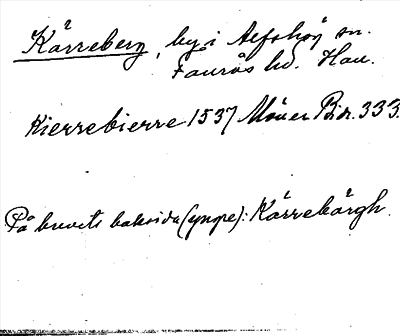 Kärreberg, by i Asfshög sn.
Faurås hd. Hall.
Kierrebierre 1537 Möller Bidr. 333.
På brevets baksida (yngre): Kärrebärgh.